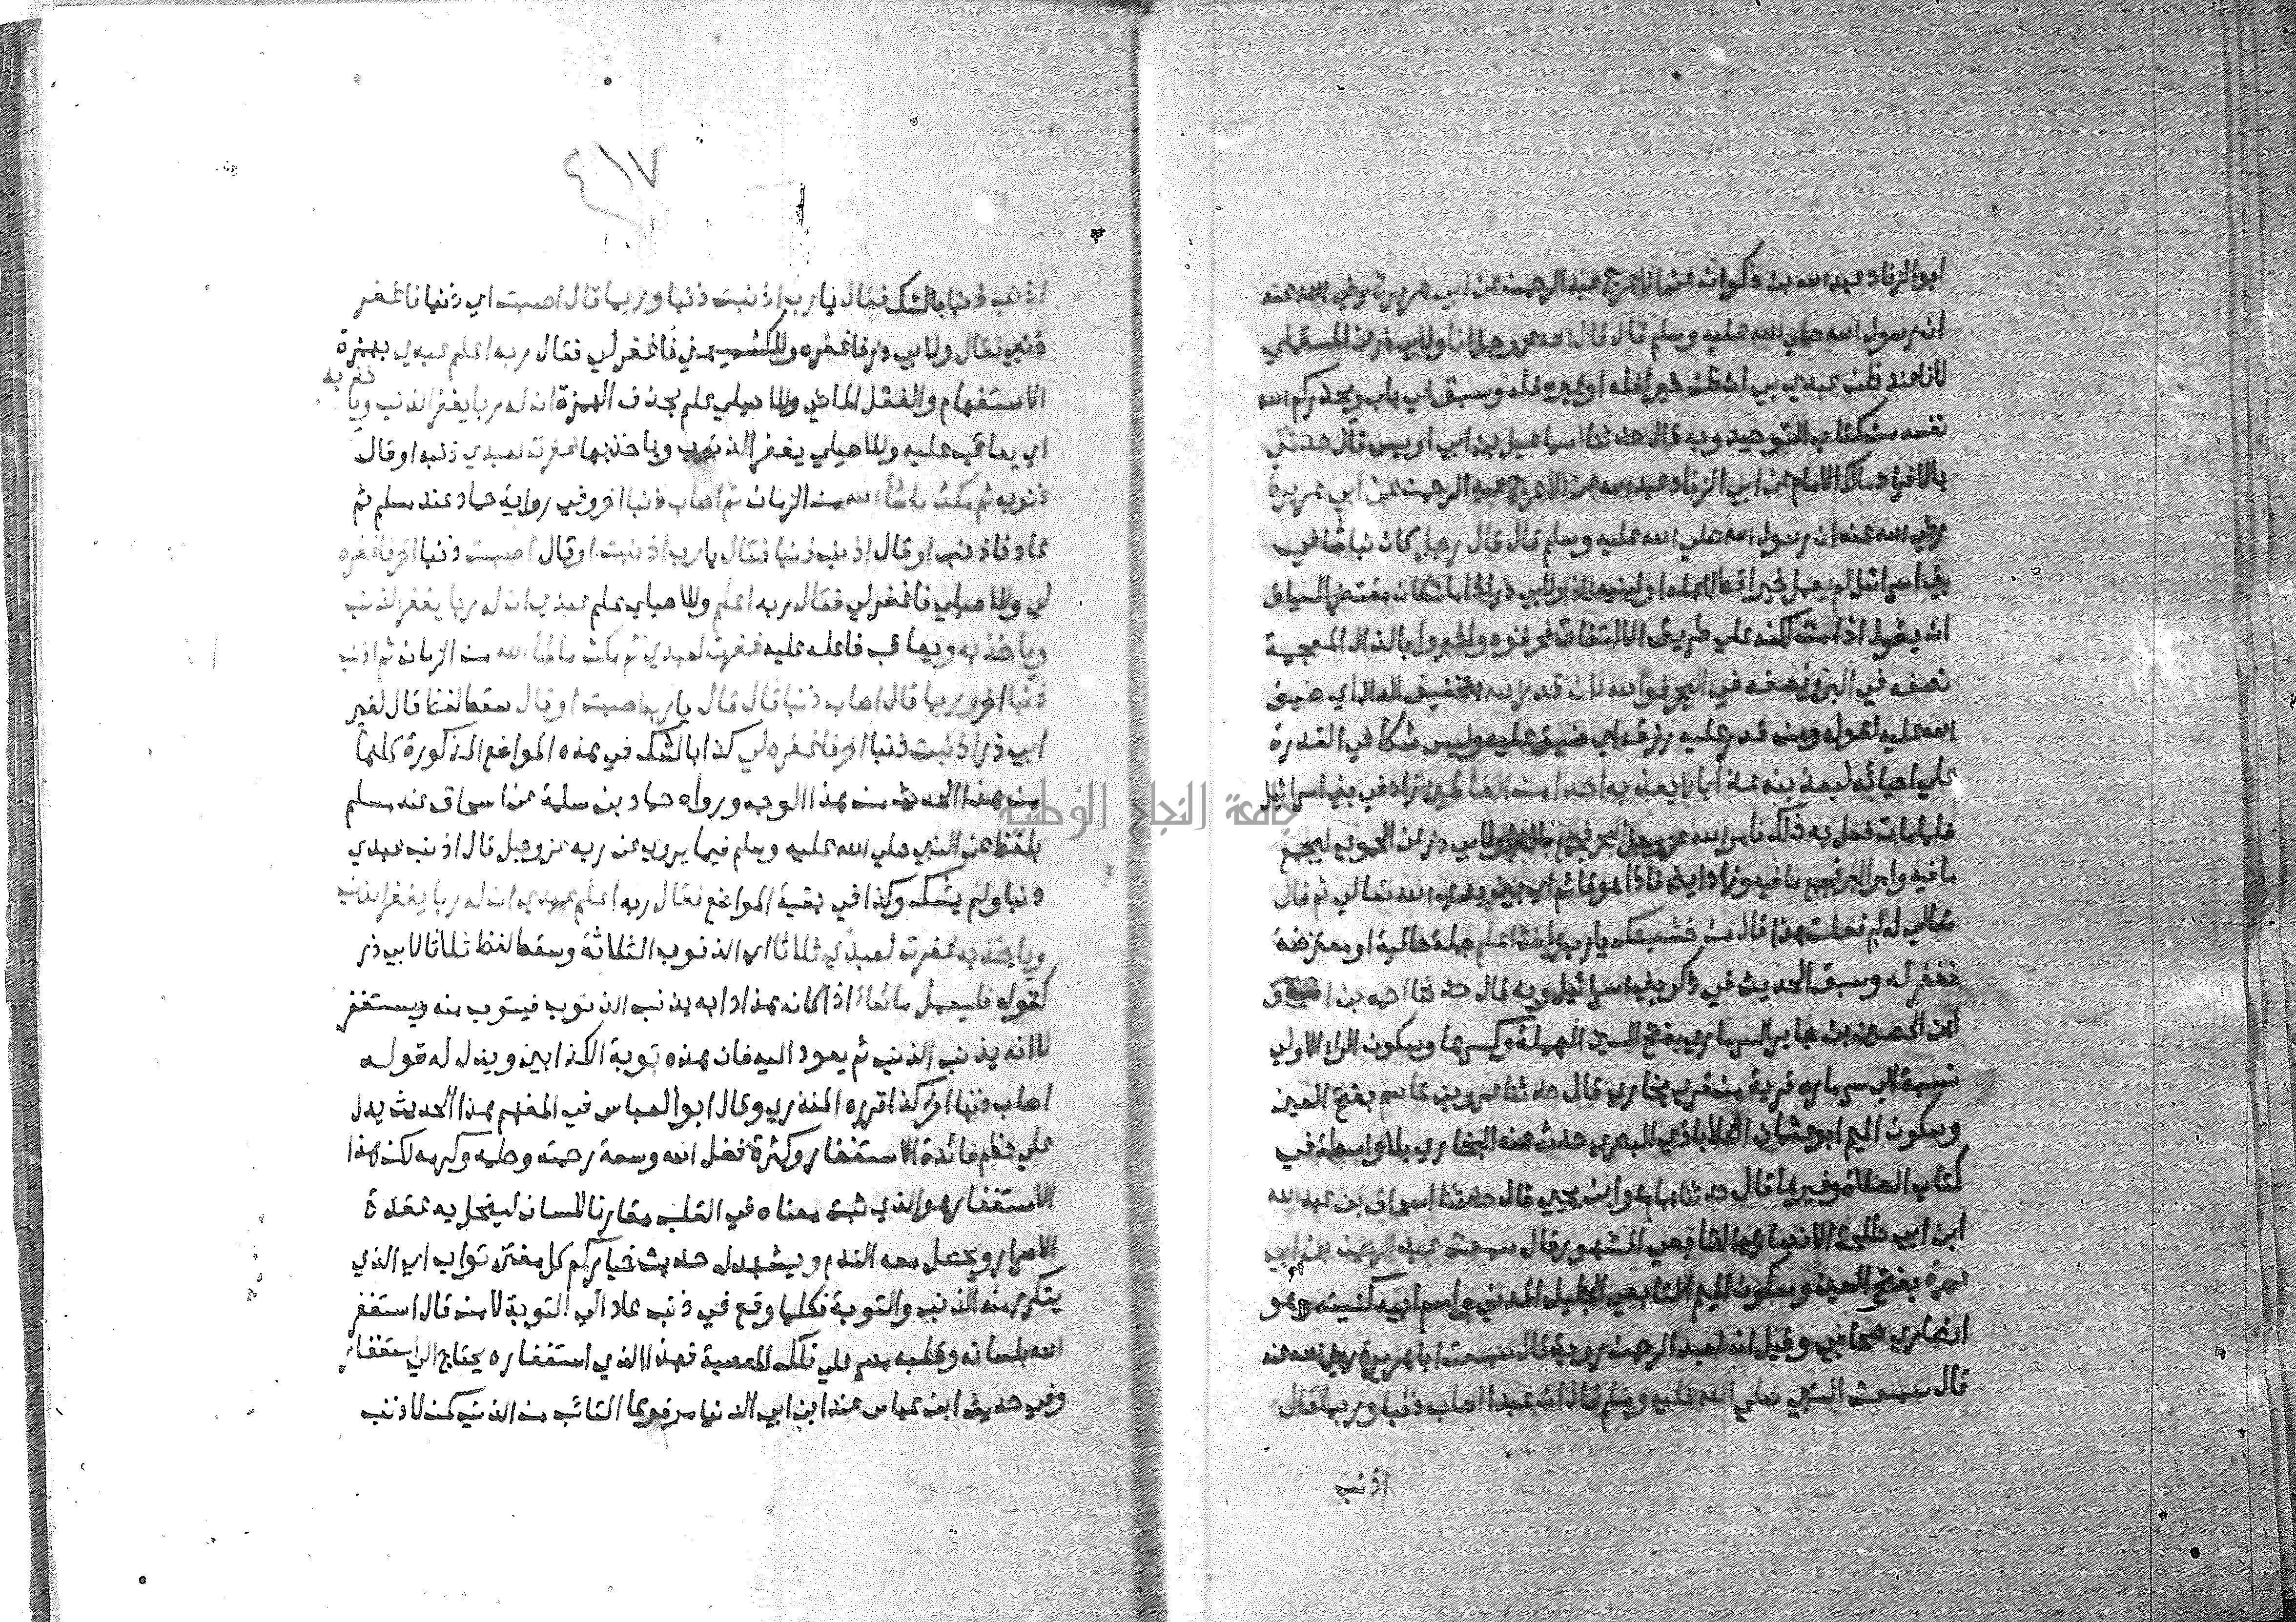 ابوالزناد عبد الله بن ذكوان عن الاعرج عبد الرحمن عن ابي هريرة رضي الله عنه
ان رسول الله صلي الله عليه وسلم قال قال الله عز وجل انا ولابي ذر عن المستملي
لانا عند ظن عبدي بي ان ظن خيرا فله او غيره فله وسبق في باب ويحذركم الله
نفسه من كتاب التوحيد وبه قال حدثنا اسماعيل بن ابي اويس قال حدثني
بالافراد مالك الامام عن ابي الزناد عبد الله عن الاعرج عبد الرحمن عن ابي هريرة
رضي الله عنه ان رسول الله صلي الله عليه وسلم قال قال رجل كان نباشا في
بني اسرائيل لم يعمل خيرا قط لاهله او لبنيه فاذا ولابي ذر اذا مات كان مقتضي السياق
ان يقول اذا مت لكنه علي طريق الالتفات فحرقوه واذروا بالذال المعجمة
نصفه في البر ونصفه في البحر فوالله لان قدر الله بتخفيف الدال اي ضيق
الله عليه لقوله ومن قدر عليه رزقه اي ضيق عليه وليس شكا في القدرة
علي احيائه ليعذبنه عذابا لا يعذبه احدا من العالمين زاد في بني اسرائيل
فلما مات فعل به ذلك فامر الله عز وجل البحر فجمع ولابي ذر عن الحموي ليجمع
ما فيه وامر البر فجمع ما فيه وزاد ايضا فاذا هو قائم اي بين يدي الله تعالي ثم قال
تعالي له لم فعلت هذا قال من خشيتك يارب وانت اعلم جملة حالية او معترضة
فغفر له وسبق الحديث في ذكر بني اسرائيل وبه قال حدثنا احمد بن اسحق
ابن الحصين بن جابر السرماري بفتح السين المهملة وكسرها وسكون الراء الاولي
نسبة الي سرماره قرية من قري بخاري قال حدثنا عمرو بن عاصم بفتح العين
وسكون الميم ابو عثمان الكلاباذي البصري حدث عنه البخاري بلا واسطة في
كتاب الصلاة وغيرها قال حدثنا همام هو ابن يحيي قال حدثنا اسحاق بن عبد الله
ابن ابي طلحة الانصاري التابعي المشهور قال سمعت عبد الرحمن بن ابي
عمرة بفتح العين وسكون الميم التابعي الجليل المدني واسم ابيه كنيته وهو
انصاري صحابي وقيل ان لعبد الرحمن روية قال سمعت ابا هريرة رضي الله عنه
قال سمعت النبي صلي الله عليه وسلم قال ان عبدا اصاب ذنبا وربما قال
اذنب
٤١٧
اذنب ذنبا بالشك فقال يارب اذنبت ذنبا وربما قال اصبت اي ذنبا فاغفر
ذنبي فقال ولابي ذر فاغفره وللكشميهني فاغفر لي فقال ربه اعلم عبدي بهمزة
الاستفهام والفعل الماضي وللاصيلي علم بحذف الهمزة ان له ربا يغفر الذنب ويا
خذ به
اي يعاقب عليه وللاصيلي يغفر الذنوب وياخذ بها غفرت لعبدي ذنبه او قال
ذنوبه ثم مكث ماشا الله من الزمان ثم اصاب ذنبا اخر وفي رواية حماد عند مسلم ثم
عاد فاذنب او قال اذنب ذنبا فقال يارب اذنبت او قال اصبت ذنبا اخر فاغفره
لي وللاصيلي فاغفر لي فقال ربه اعلم وللاصيلي علم عبدي ان له ربا يغفر الذنب
وياخذ به ويعاقب فاعله عليه غفرت لعبدي ثم مكث ماشا الله من الزمان ثم اذنب
ذنبا اخر وربما قال اصاب ذنبا قال قال يارب اصبت او قال سقط لفظ قال لغير
ابي ذر اذنبت ذنبا اخر فاغفره لي كذا بالشك في هذه المواضع المذكورة كلها
من هذا الحديث من هذا الوجه ورواه حماد بن سلمة عن اسحاق عند مسلم
بلفظ عن النبي صلي الله عليه وسلم فيما يرويه عن ربه عز وجل قال اذنب عبدي
ذنبا ولم يشك وكذا في بقية المواضع فقال ربه اعلم عبدي ان له ربا يغفر الذنب
وياخذ به غفرت لعبدي ثلاثا اي الذنوب الثلاثة وسقط لفظ ثلاثا لابي ذر
كقوله فليعمل ماشاء اذا كان هذا دابه يذنب الذنوب فيتوب منه ويستغفر
لا انه يذنب الذنب ثم يعود اليه فان هذه توبة الكذابين ويدل له قوله
اصاب ذنبا اخر كذا قرره المنذري وقال ابو العباس في المفهم هذا الحديث يدل
علي عظم فائدة الاستغفار وكثرة فضل الله وسعة رحمته وحلمه وكرمه لكن هذا
الاستغفار هو الذي ثبت معناه في القلب مقارنا للسان لينحل به عقدة
الاصرار ويحصل معه الندم ويشهد له حديث خياركم كل مفتن تواب اي الذي
يتكرر منه الذنب والتوبة فكلما وقع في ذنب عاد الي التوبة لا من قال استغفر
الله بلسانه وقلبه مصر علي تلك المعصية فهذا الذي استغفاره يحتاج الي استغفار
وفي حديث ابن عباس عند ابن ابي الدنيا مرفوعا التائب من الذنب كمن لا ذنب
جامعة النجاح الوطنية